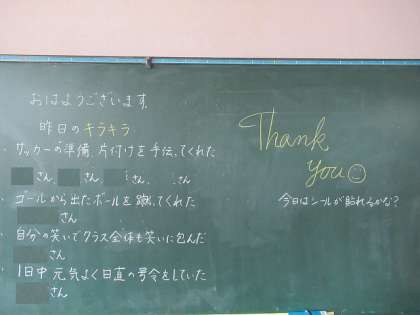 おはようございます。
昨日のキラキラ
・サッカーの準備、片付けを手伝ってくれた
さん、さん、さん、さん
・ゴールから出たボールを蹴ってくれた
さん
・自分の笑いでクラス全体も笑いに包んだ
さん
・1日中元気よく日直の号令をしていた
さん
Thank
you
今日はシールが貼れるかな?